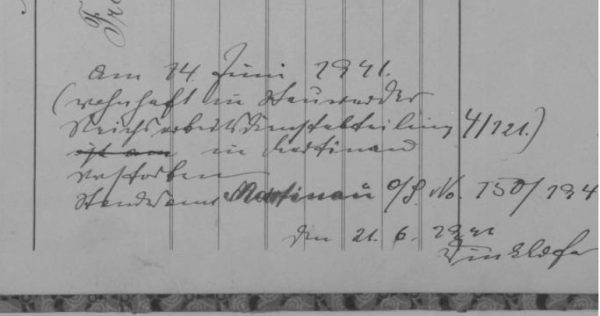 Am 14 Juni 1941.
(wohnhaft in
Reichsarbeitsdienstabteilung 4/121.)
ist am in Martinau
verstorben
Standesamt Martinau O/S. No. 150/194
den 21. 6. 1941